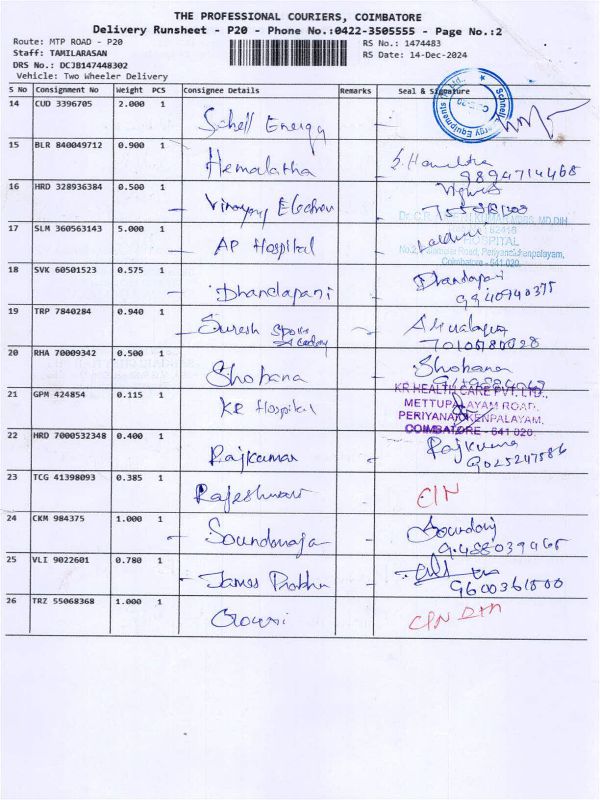 THE PROFESSIONAL COURIERS, COIMBATORE
Delivery Runsheet - P20 - Phone No.:0422-3505555 - Page No.:2
Route: MTP ROAD - P20 RS No.: 1474483
Staff: TAMILARASAN RS Date: 14-Dec-2024
DRS No.: DCJB147448302
Vehicle: Two Wheeler Delivery
S No Consignment No Weight PCS Consignee Details Remarks Seal & Signature
14 CUD 3396705 2.000 1
Schell Energy
15 BLR 840049712 0.900 1
Hemalatha
9894714468
16 HRD 328936384 0.500 1
17 SLM 360563143 5.000 1
AP Hospital
HOSPITAL
Coimbatore - 641 020.
18 SVK 60501523 0.575 1
Dhandapani Dhandapani
9940940375
19 TRP 7840284 0.940 1
Suresh
20 RHA 70009342 0.500 1
Shobana Shobana
21 GPM 424854 0.115 1
KR Hospital
KR HEALTH CARE PVT. LTD.,
METTUPALAYAM ROAD,
PERIYANAICKENPALAYAM,
COIMBATORE - 641 020.
22 HRD 7000532348 0.400 1
Rajkumar Rajkumar
9025247586
23 TCG 41398093 0.385 1
Rajeshwari
24 CKM 984375 1.000 1
9488039465
25 VLI 9022601 0.780 1
James Prabhu
9600361000
26 TRZ 55068368 1.000 1
Gowri